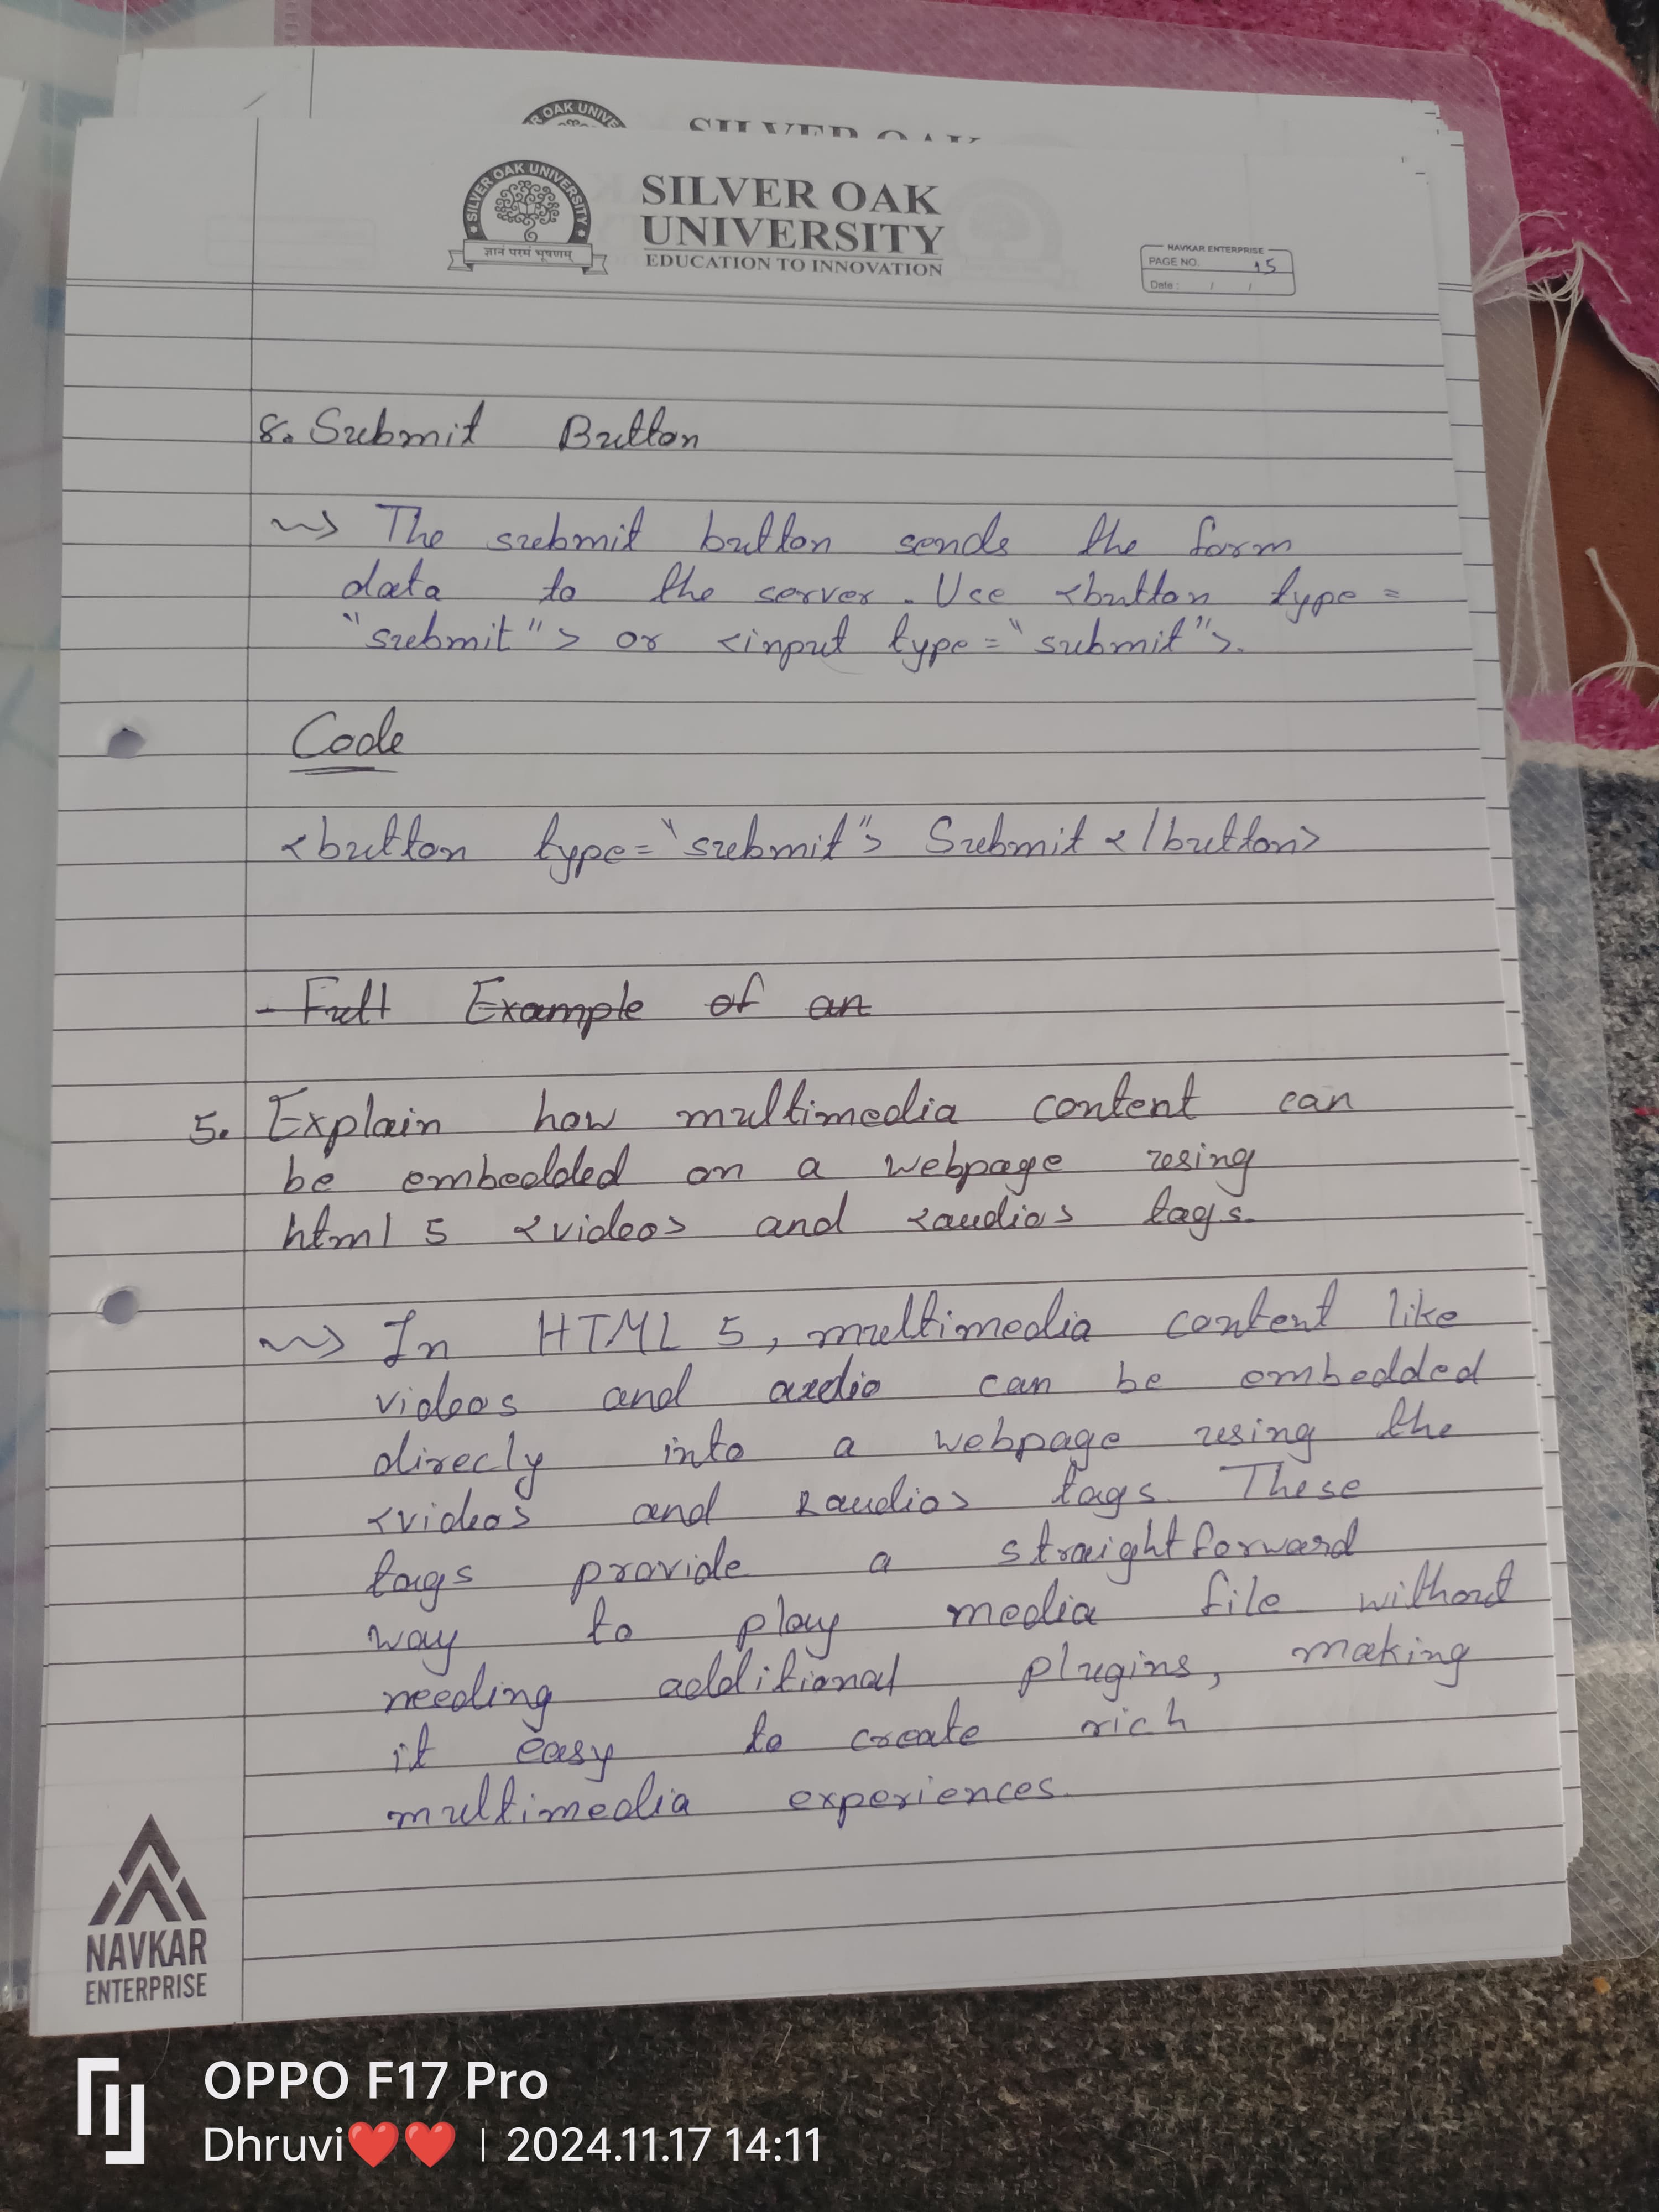 SILVER OAK
SILVER OAK UNIVERSITY
ज्ञानं परमं भूषणम्
SILVER OAK
UNIVERSITY
EDUCATION TO INNOVATION
NAVKAR ENTERPRISE
PAGE NO. 15
Date : / /
8. Submit Button
The submit button sends the form
data to the server. Use <button type =
"submit"> or <input type = "submit">.
Code
<button type = "submit"> Submit </button>
- Full Example of an
5. Explain how multimedia content can
be embedded on a webpage using
html 5 <video> and <audio> tags.
In HTML 5, multimedia content like
videos and audio can be embedded
direcly into a webpage using the
<video> and <audio> tags. These
tags provide a straightforward
way to play media file without
needing additional plugins, making
it easy to create rich
multimedia experiences.
NAVKAR
ENTERPRISE
OPPO F17 Pro
Dhruvi❤️❤️ | 2024.11.17 14:11